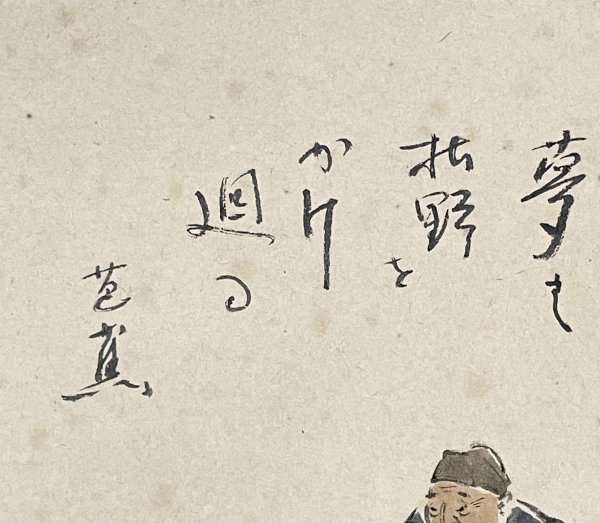 夢は
枯野を
かけ
廻る
芭蕉